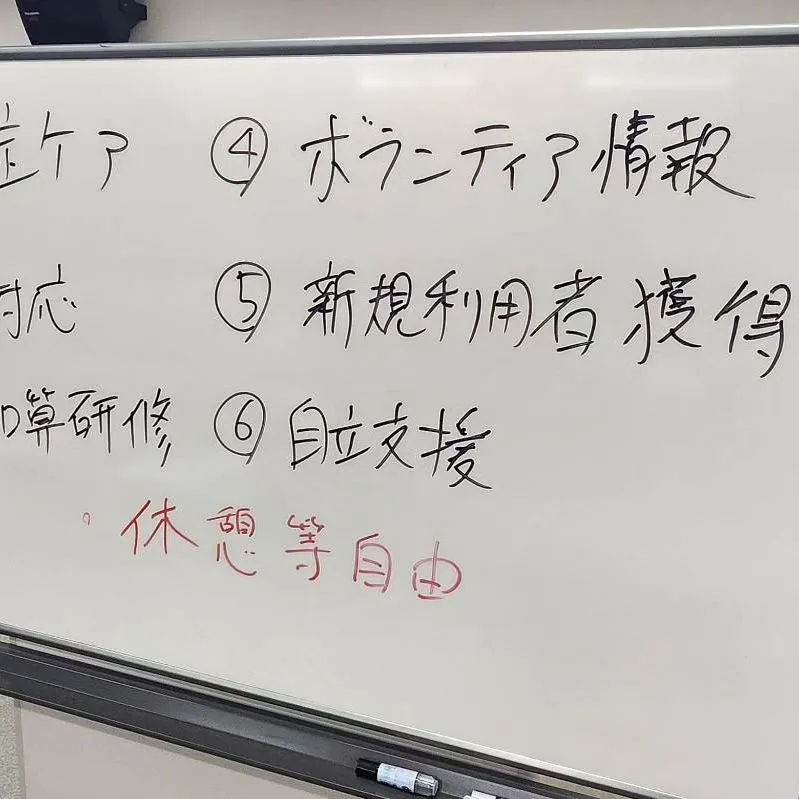 症ケア ④ ボランティア情報
対応 ⑤ 新規利用者獲得
加算研修 ⑥ 自立支援
・休憩等自由